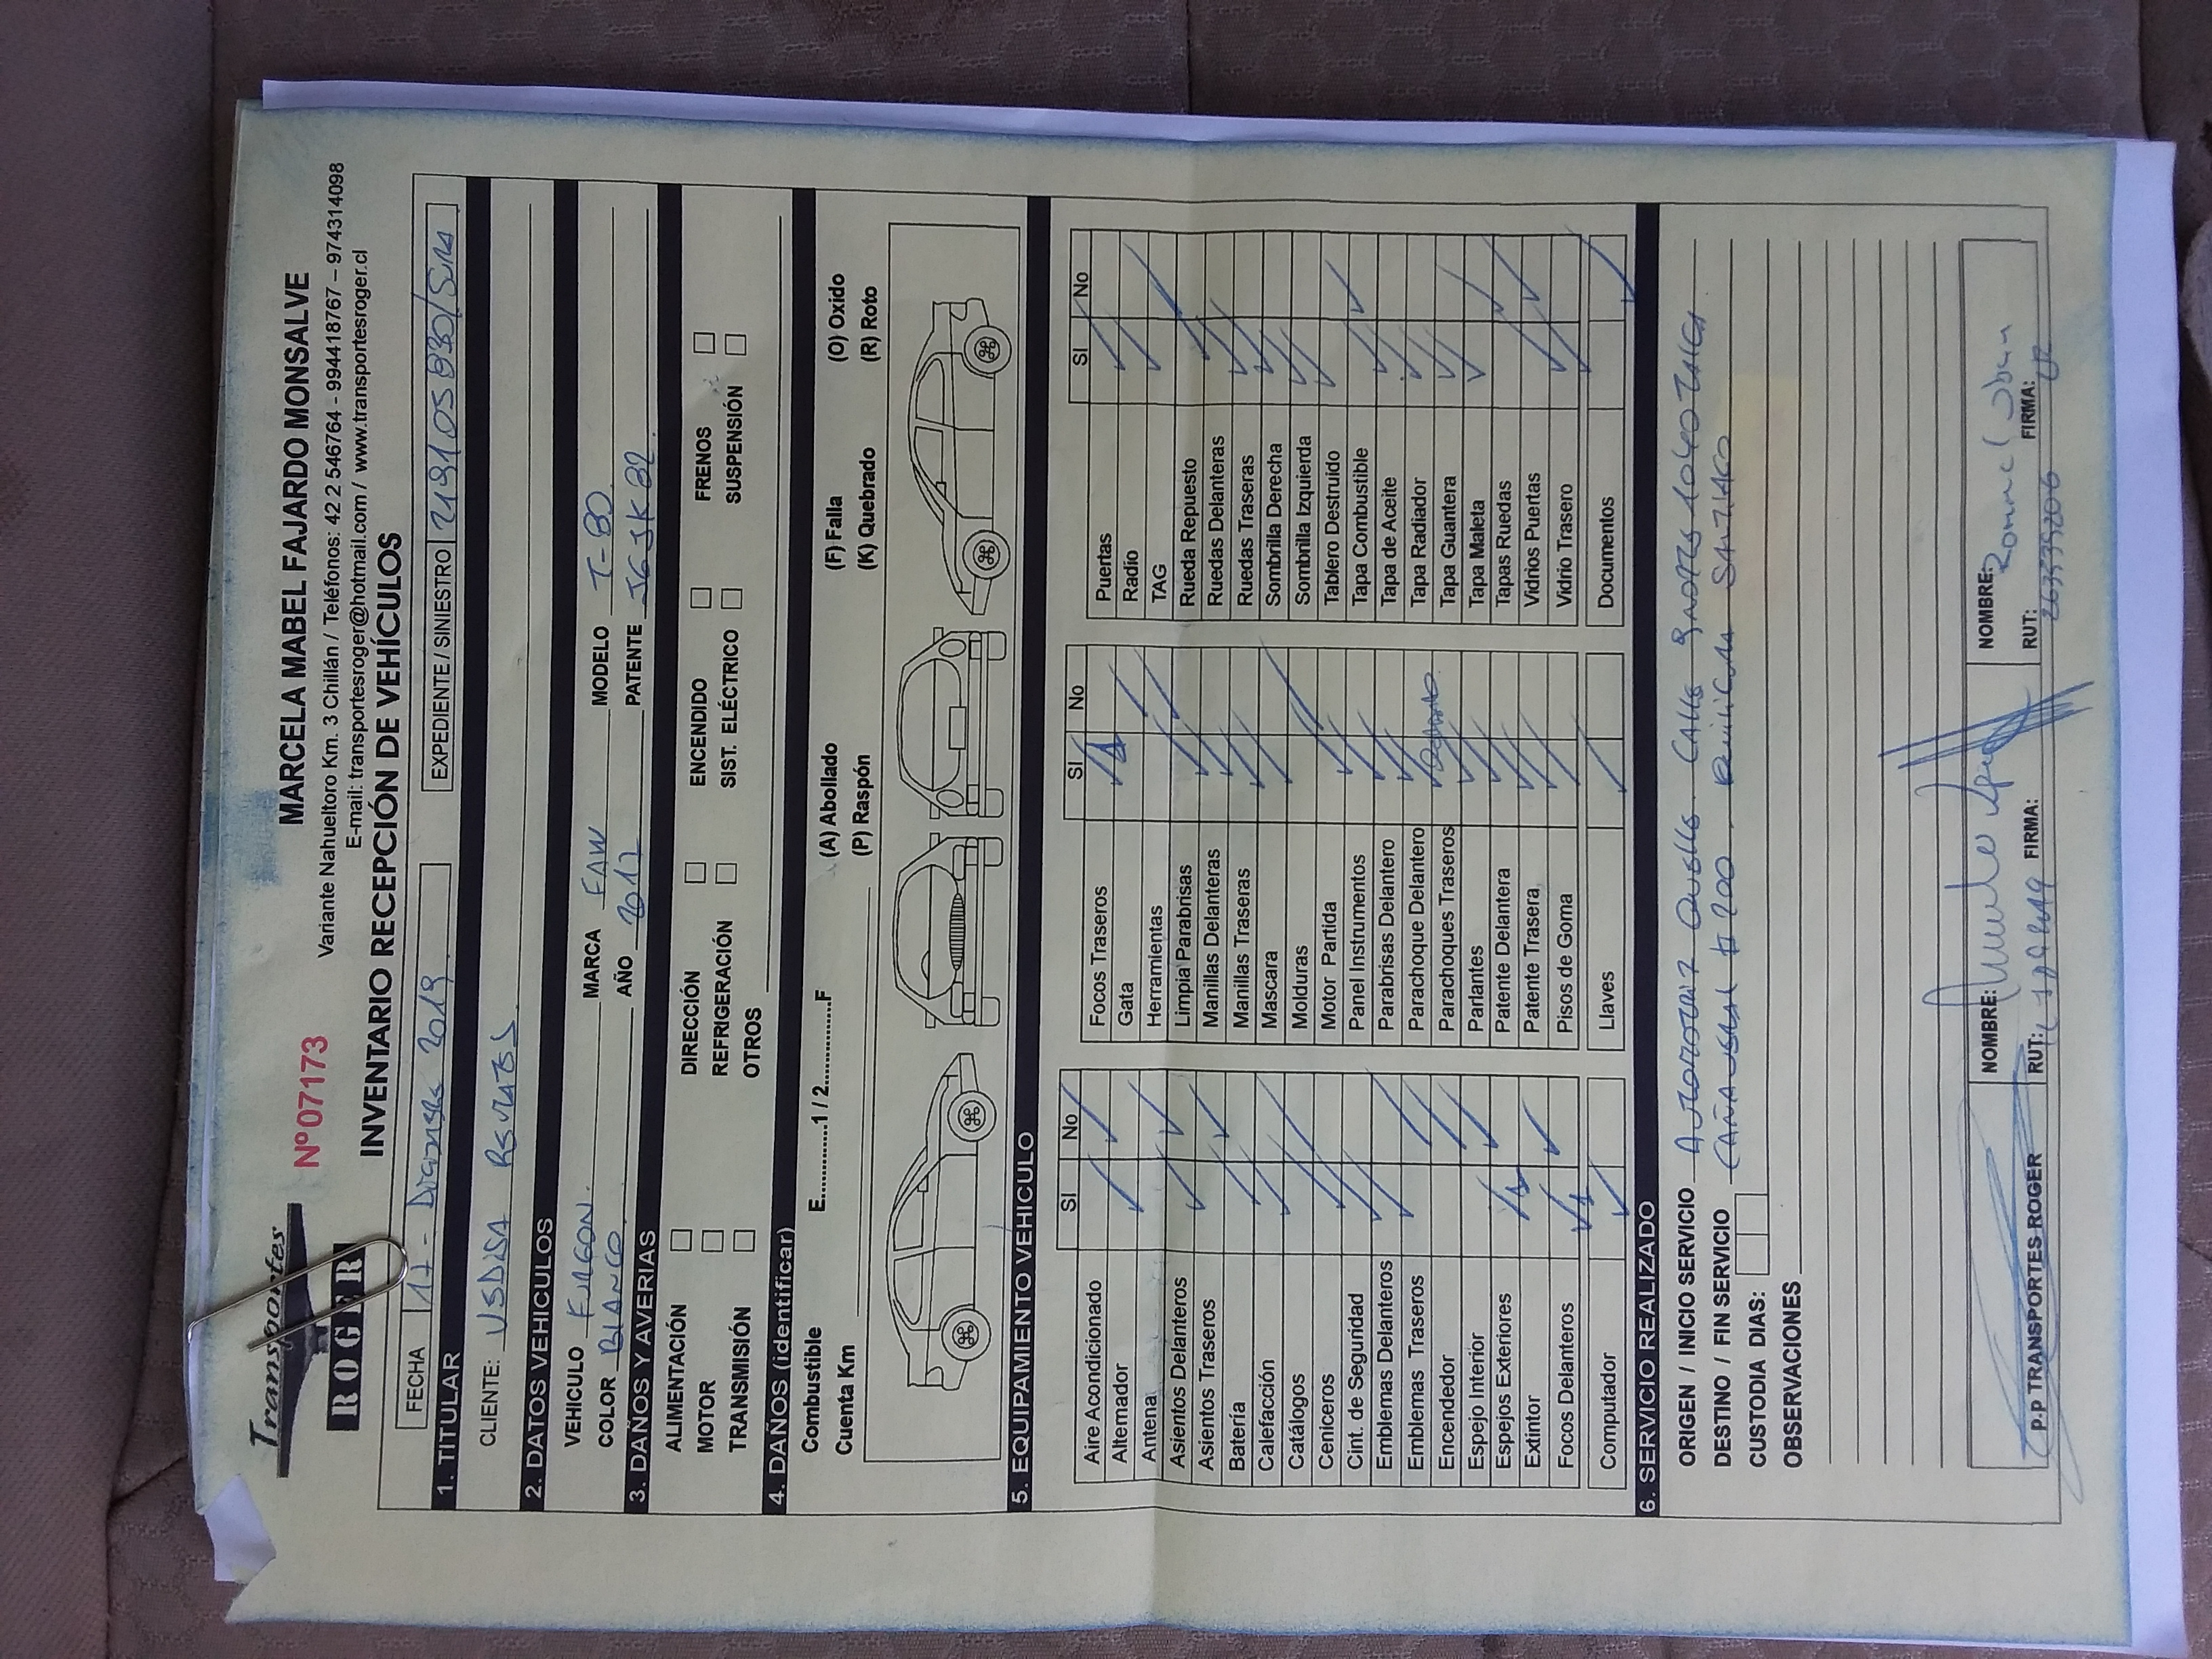 Transportes
ROGER
Nº07173
MARCELA MABEL FAJARDO MONSALVE
Variante Nahueltoro Km. 3 Chillán / Teléfonos: 42 2 546764 - 994418767 – 974314098
E-mail: transportesroger@hotmail.com / www.transportesroger.cl
INVENTARIO RECEPCIÓN DE VEHÍCULOS
FECHA 17 - Diciembre 2019. EXPEDIENTE / SINIESTRO
1. TITULAR
CLIENTE:
2. DATOS VEHICULOS
VEHICULO FURGON. MARCA FAW MODELO T-80
COLOR BLANCO. AÑO 2017 PATENTE
3. DAÑOS Y AVERIAS
ALIMENTACIÓN DIRECCIÓN ENCENDIDO FRENOS
MOTOR REFRIGERACIÓN SIST. ELÉCTRICO SUSPENSIÓN
TRANSMISIÓN OTROS
4. DAÑOS (identificar)
Combustible E...........1 / 2...........F (A) Abollado (F) Falla (O) Oxido
Cuenta Km (P) Raspón (K) Quebrado (R) Roto
5. EQUIPAMIENTO VEHICULO
SI No SI No SI No
Aire Acondicionado Focos Traseros Puertas
Alternador Gata Radio
Antena Herramientas TAG
Asientos Delanteros Limpia Parabrisas Rueda Repuesto
Asientos Traseros Manillas Delanteras Ruedas Delanteras
Batería Manillas Traseras Ruedas Traseras
Calefacción Mascara Sombrilla Derecha
Catálogos Molduras Sombrilla Izquierda
Ceniceros Motor Partida Tablero Destruido
Cint. de Seguridad Panel Instrumentos Tapa Combustible
Emblemas Delanteros Parabrisas Delantero Tapa de Aceite
Emblemas Traseros Parachoque Delantero Tapa Radiador
Encendedor Parachoques Traseros Tapa Guantera
Espejo Interior Parlantes Tapa Maleta
Espejos Exteriores Patente Delantera Tapas Ruedas
Extintor Patente Trasera Vidrios Puertas
Focos Delanteros Pisos de Goma Vidrio Trasero
Computador Llaves Documentos
6. SERVICIO REALIZADO
ORIGEN / INICIO SERVICIO
DESTINO / FIN SERVICIO # 200. SANTIAGO
CUSTODIA DIAS:
OBSERVACIONES
P.P TRANSPORTES ROGER
NOMBRE:
RUT: FIRMA:
NOMBRE:
RUT: FIRMA: